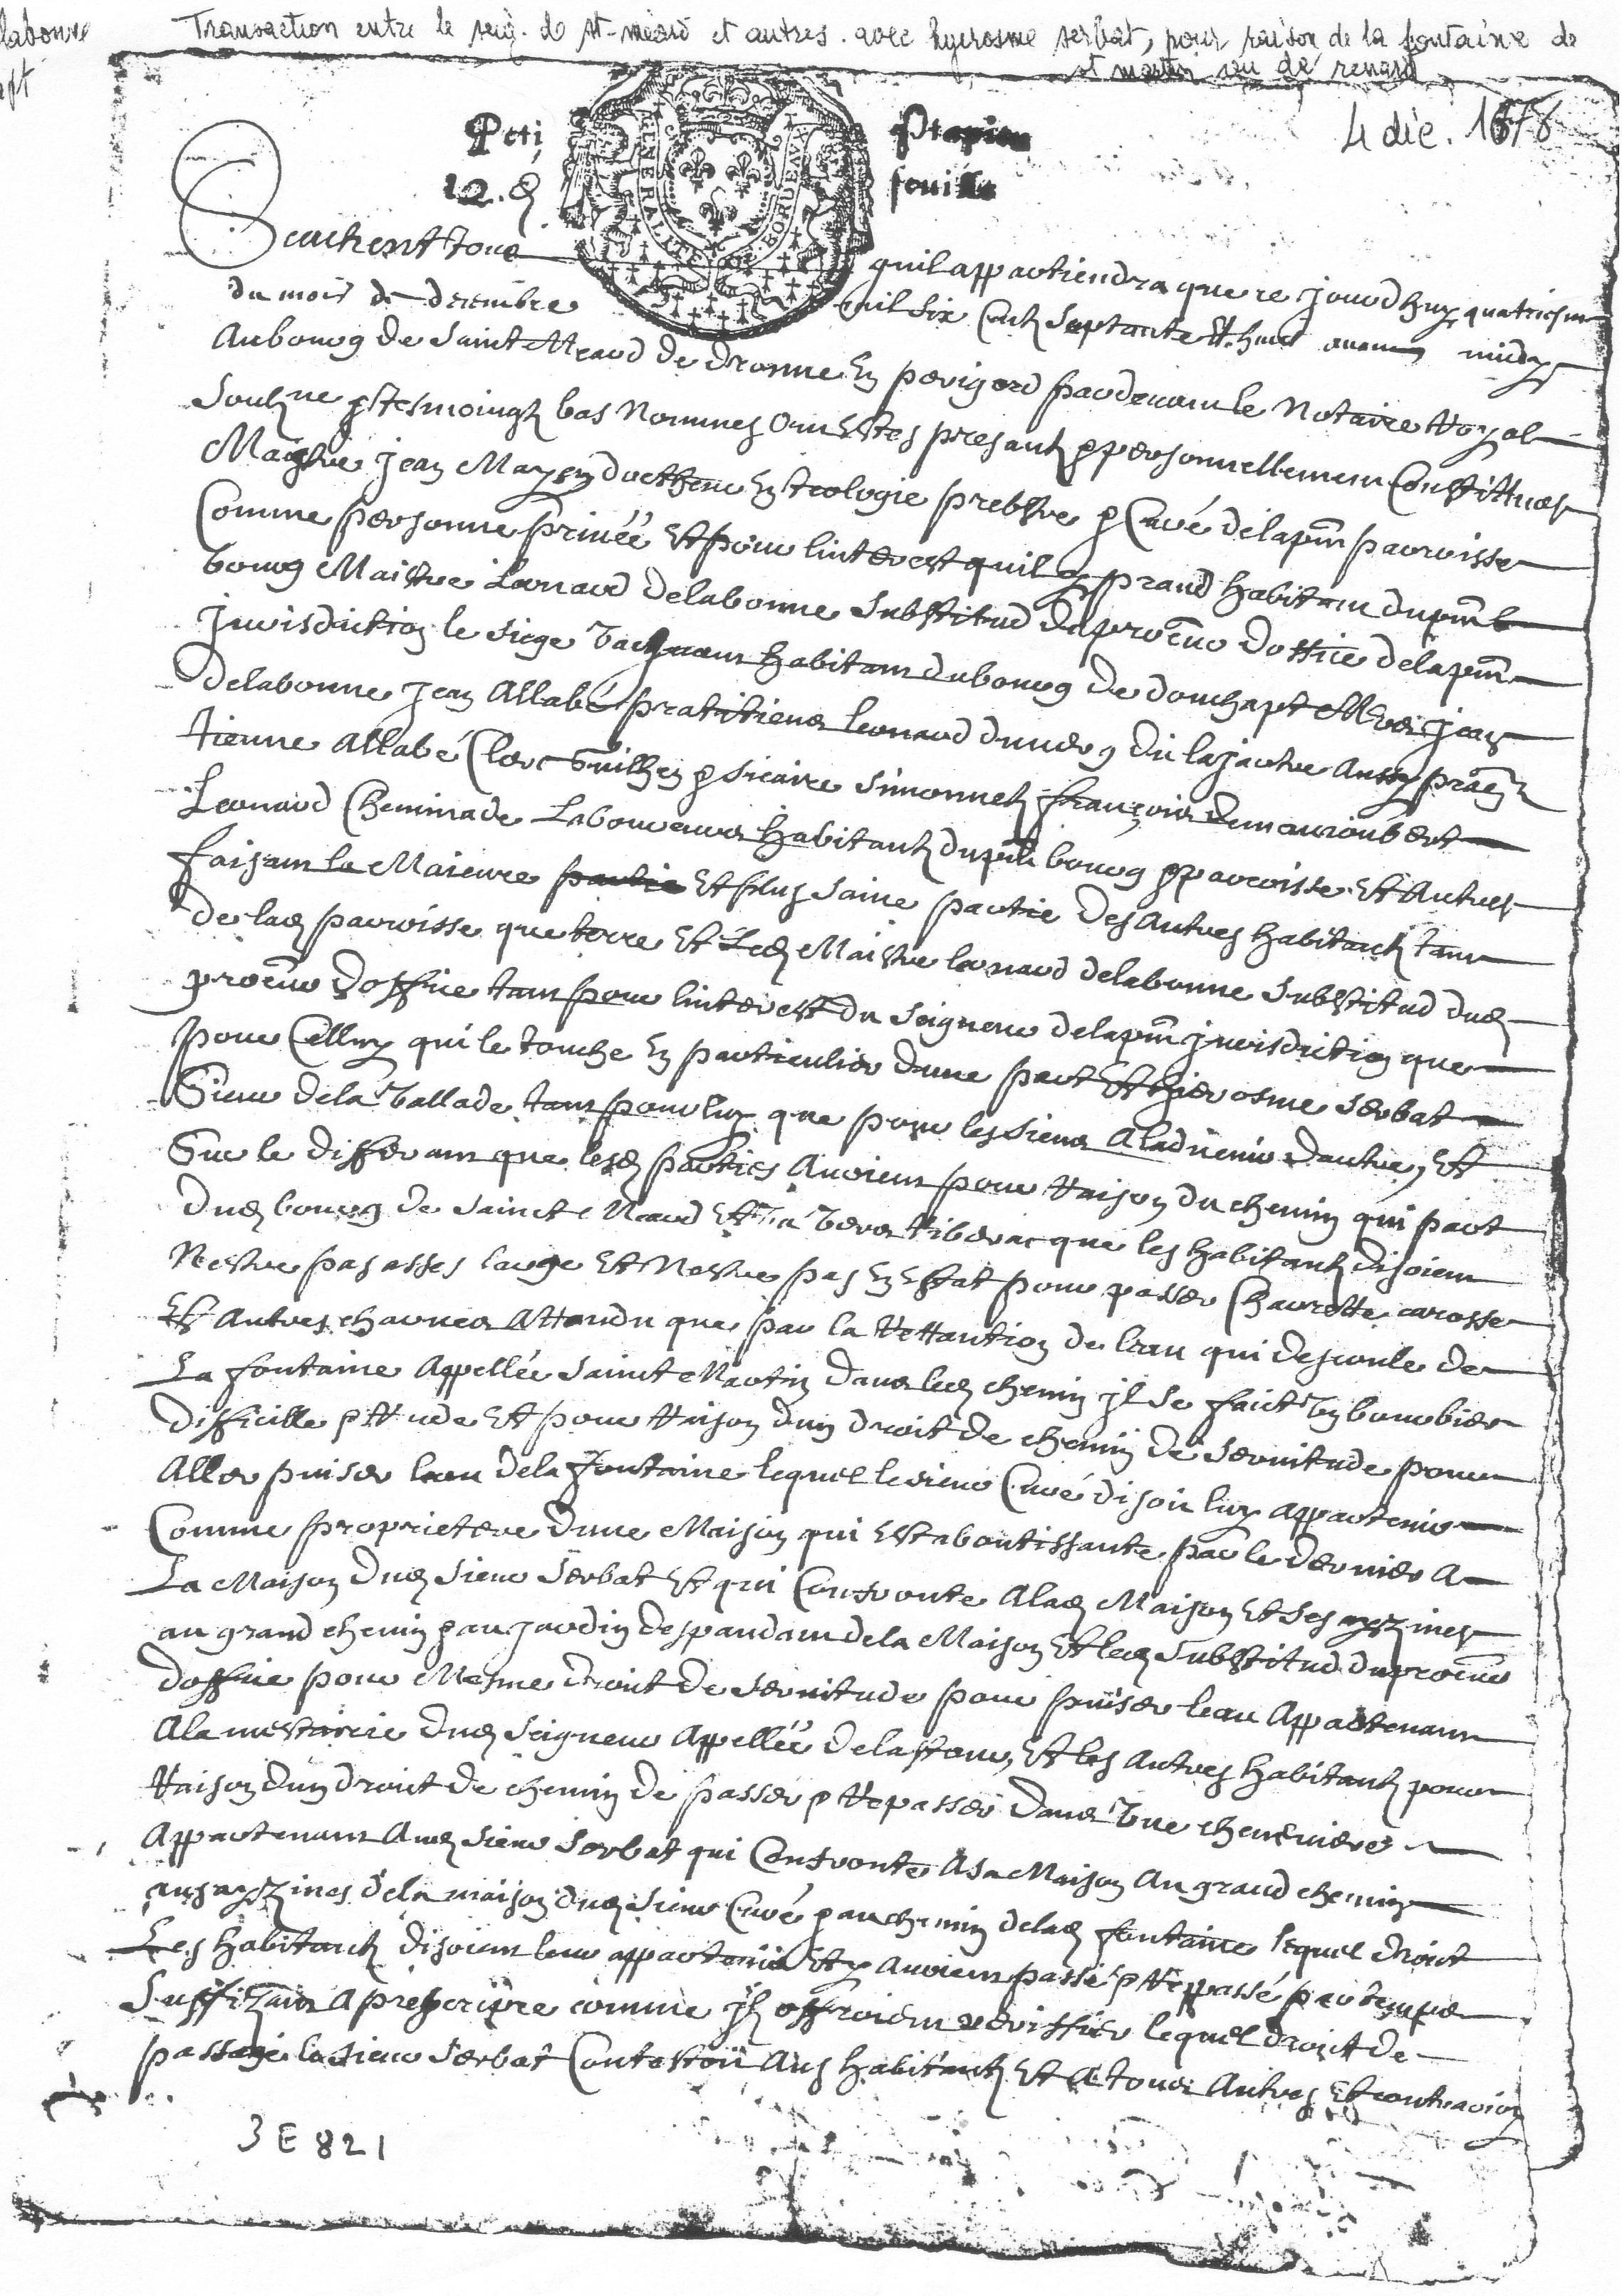 labonne
apt
Transaction entre le seig. de st-méard et autres. avec hyerosme serbat, pour raison de la fontaine de
st martin
4 dec. 1678
Peti Ptapier
12. d feuille
GENERALITE DE BORDEAUX
Scachent tous quil appartiendra que ce jourdhuy quatriesme
du mois de decembre mil six centz septante et huit avant midy
au bourg de Saint Meard de dronne en perigord pardevant le Notaire Royal
soubzne & tesmoingtz bas nommes ont estes presantz & personnellement constittues
Maistre jean May docteur en teologie prebstre & Curé de la pnt parroisse
Comme personne privéé et pour linterest quil y prand habitant du pnt
bourg Maistre Leonard delabonne substitud du procur doffice de la pnt
jurisdiction le siege vacquant habitant du bourg de douchapt Mes jean
delabonne jean Allabé pratitiens leonard dit la jartre aussy
tienne Allabé Clerc Guilhen & sicaire simonnetz françois
Leonard Cheminade Laboureurs habitantz du pnt bourg & parroisse et autres
faisant la Maieure partie et plus saine partie des autres habitantz tant
de lad parroisse que terre et led Maistre leonard delabonne substitud dud
procur doffice tant pour linterest du seigneur de la pnt jurisdiction que
pour Celluy qui le touche en particulier dune part et hierosme serbat
Sieur de la vallade tant pour luy que pour les siens a ladvenir dautre, et
Sur le differant que lesd parties avoient pour raison du chemin qui part
dud bourg de Sainct Meard et va vers riberac que les habitantz disoient
Nestre pas asses large et Nestre pas en estat pour passer Charrette carosse
et autres charrois attandu que par la rettantion de leau qui descoule de
La fontaine appellée Sainct Martin dans led chemin jl se faict un bourbier
difficille & rude et pour raison dun droit de chemin de servitude pour
aller puiser leau de la fontaine lequel le sieur Curé disoit luy appartenir
Comme proprietere dune Maison qui est aboutissante par le dernier a
La Maison dud sieur serbat et qui Confronte a lad Maison et ses ayzines
au grand chemin & au jardin despandant de la Maison et led substitud du procur
doffice pour Mesme droit de servitude pour puiser leau appartenant
a la mestairie dud seigneur appellée de lastour, et les autres habitantz pour
raison dun droit de chemin de passer & repasser dans une cheneviere
appartenant aud sieur serbat qui Confronte a sa Maison au grand chemin
aux ayzines de la maison dud sieur Curé & au chemin de lad fontaine lequel droit
Les habitantz disoient leur appartenir et y avoient passé & reppassé par temps
suffizant a prescripre comme jlz offroient veriffier lequel droit de
passage le sieur serbat Contestoit aux habitantz et a tous autres et
3 E 821